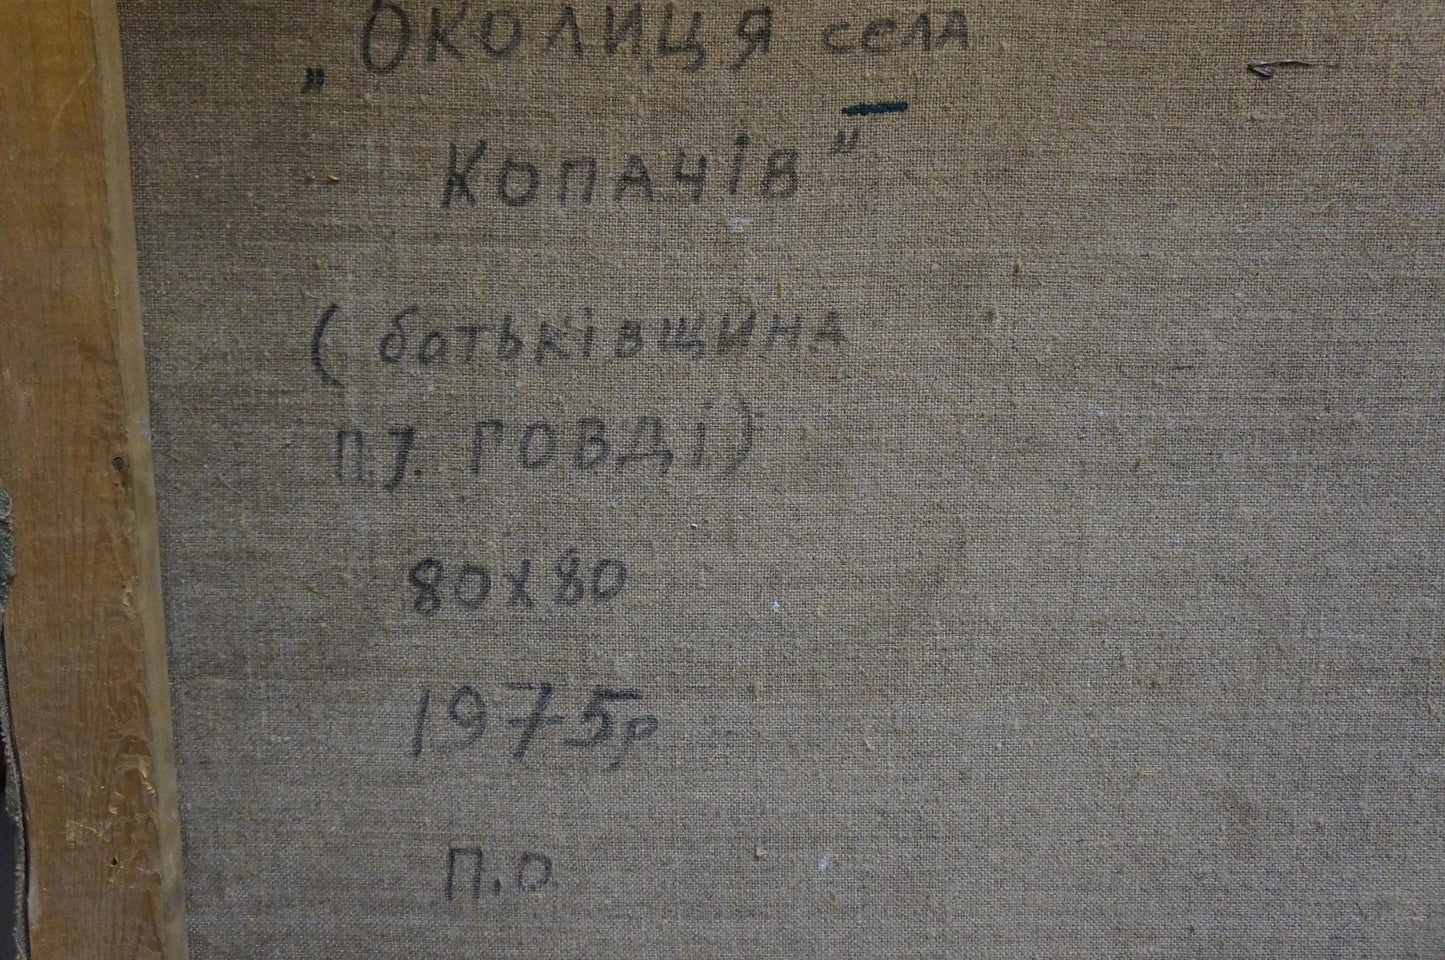 „ОКОЛИЦЯ СЕЛА
КОПАЧІВ"
(ботьківщина
П.І. ГОВДІ)
80х80
1975р
П.О